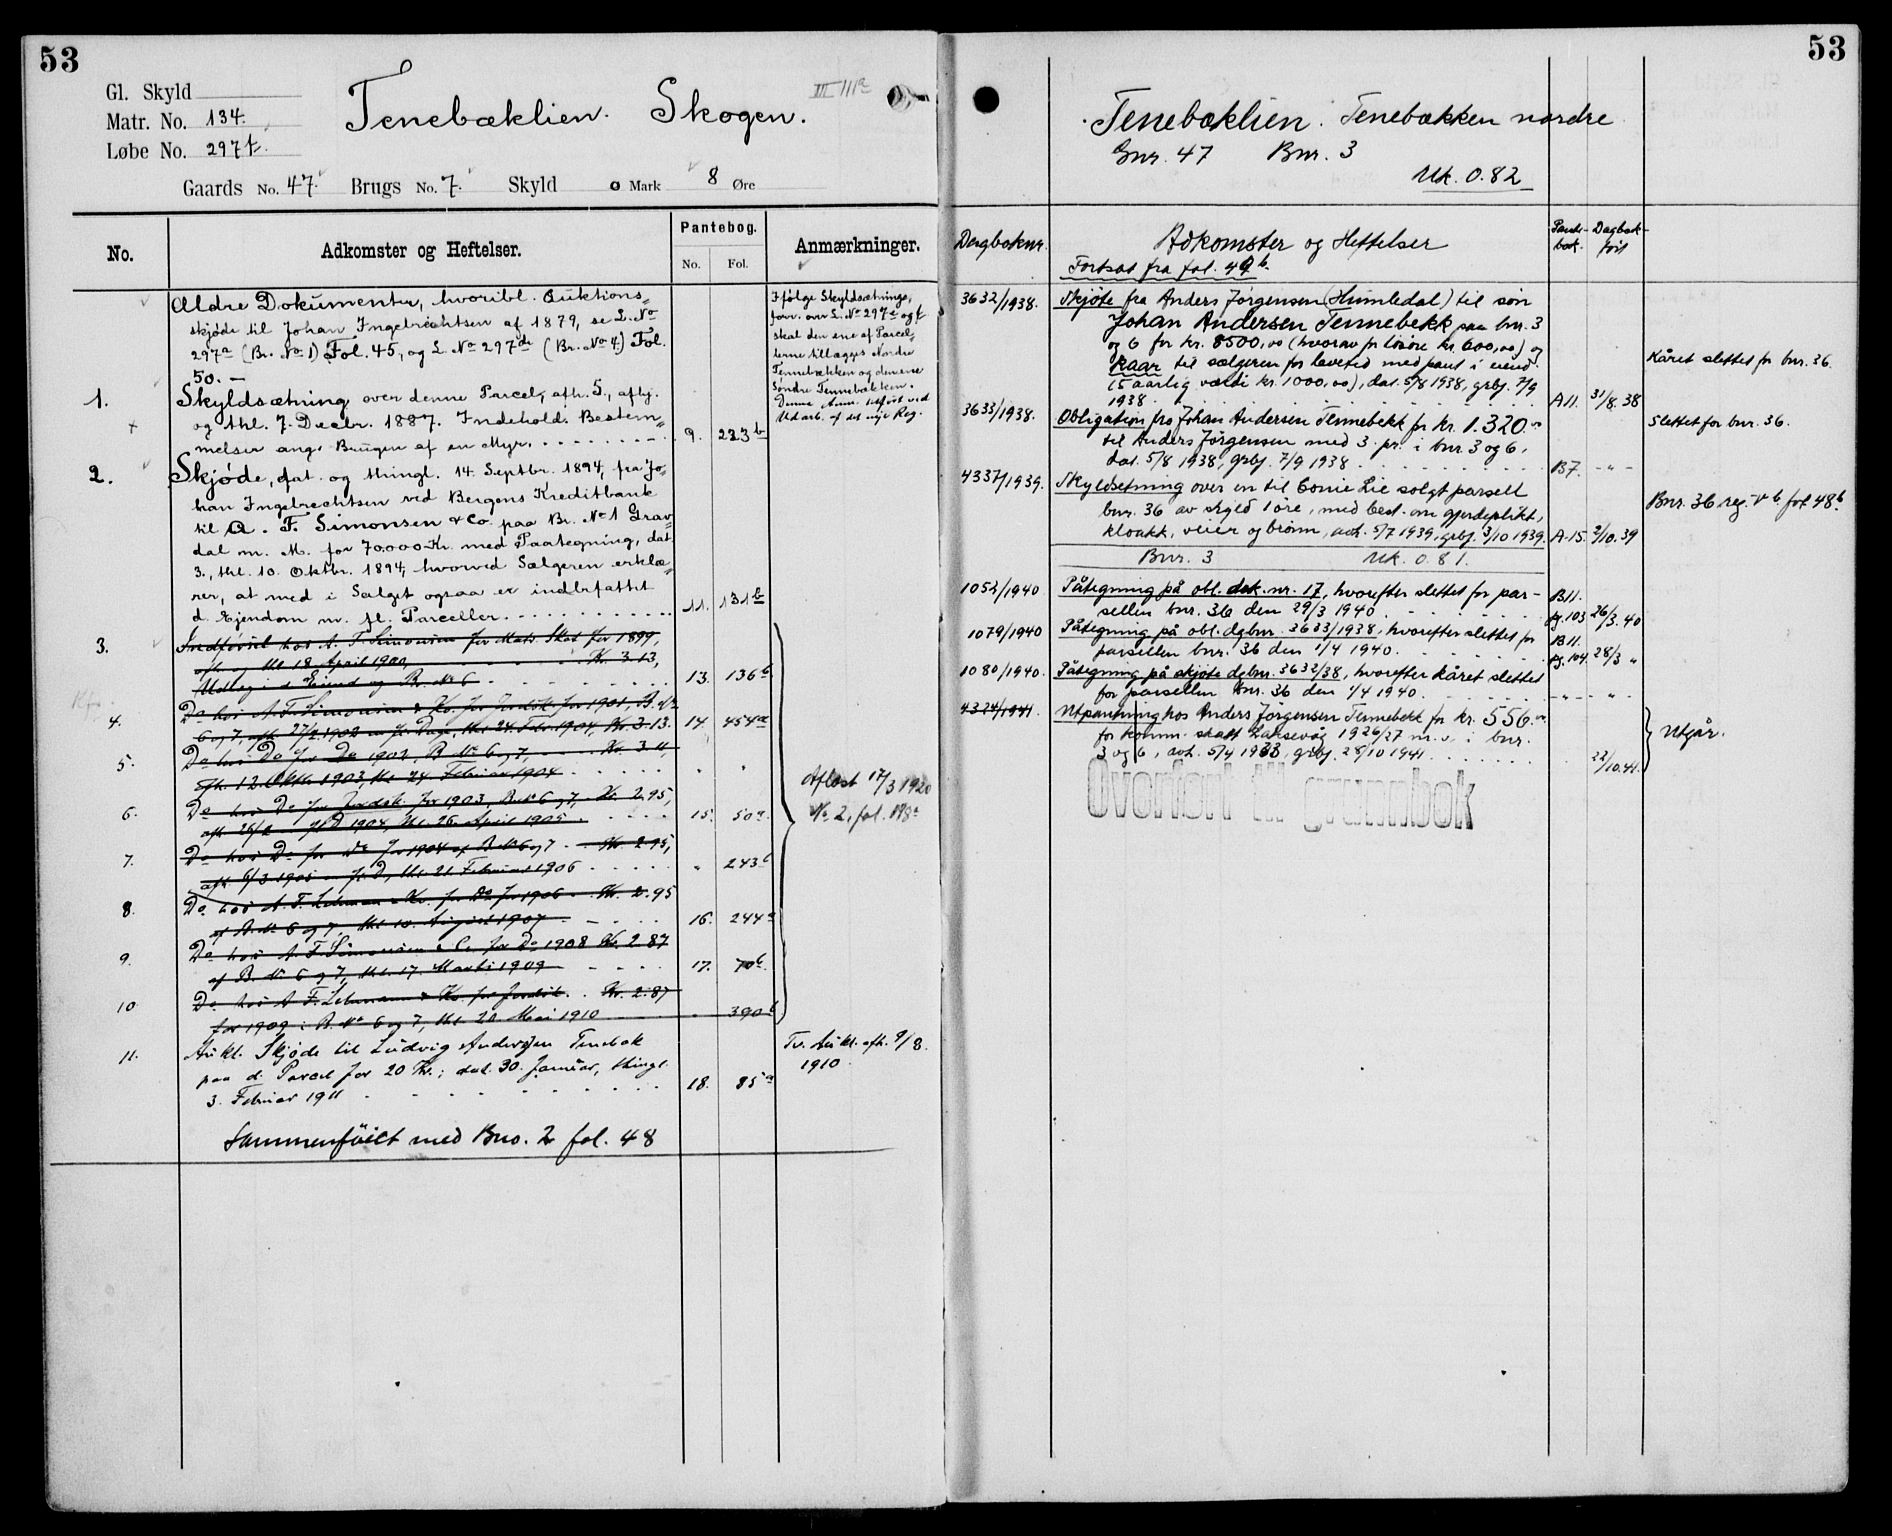 53
Gl. Skyld
Matr. No. 134.
Løbe No. 297 f.
Tenebæklien. Skogen.
Gaards No. 47. Brugs No. 7. Skyld 0 Mark 8 Øre
No.
Adkomster og Heftelser.
Pantebog.
No. Fol.
Anmærkninger.
Ældre Dokumenter, hvoribl. Auktions-
skjøde til Johan Ingebrechtsen af 1879, se L. No
297a (Br. No 1) Fol. 45, og L. No 297 de (Br. No 4) Fol.
50. —
Ifølge Skyldsætnings,
forr. over L. No 297 e og f
skal den ene af Parcel-
lerne tillægges Nordre
Tennebækken og den ene
Søndre Tennebækken.
Denne Anm. tilføiet ved
Udarb. af det nye Reg.
1. Skyldsætning over denne Parcel, afh. 5., afhj.
og thl. 7. Decbr. 1887. Indehold. Bestem-
melser ang. Brugen af en Myr. 9. 223 b
2. Skjøde, dat. og thingl. 14. Septbr. 1894, fra Jo-
han Ingebrechtsen ved Bergens Kreditbank
til A. F. Simonsen & Co. paa Br. No 1 Grav-
dal m. M. for 70.000 Kr. med Paategning, dat.
3., thl. 10. Oktbr. 1894, hvorved Sælgeren erklæ-
rer, at med i Salget ogsaa er indbefattet
d. Ejendom m. fl. Parceller. 11. 131 b
3. Indførsel hos A. F. Simonsen for Mats. Skat for 1899,
afh. og thl. 18 April 1900, Kr. 3.13,
Udlæg i d. Eiend og B. No 6 13. 136 b
4. Do hos A. F. Simonsen & Ko. for Jordsk. for 1901, B. No
6 og 7, afh. 27/2 1902 m. fl. Dage, thl. 24. Febr. 1904, Kr. 3.13. 14. 454 a
5. Do hos Do for Do 1902, B. No 6 og 7, Kr. 3.11,
afh. 12. Oktbr. 1903, thl. 24. Februar 1904 " "
6. Do hos Do for Jordsk. for 1903, B. No 6 og 7, Kr. 2.95,
afh. 26/2 1904, thl. 26. April 1905. 15. 50 a
7. Do hos Do for Do for 1904 af B. No 6 og 7 Kr. 2.95,
afh. 6/3 1905 m. fl. D., thl. 21 Februar 1906 " 243 b
8. Do hos A. F. Lehmann & Ko. for Do for 1906 Kr. 2.95
af B. No 6 og 7, thl. 10. August 1907 16. 244 a
9. Do hos A. F. Simonsen & Co. for Do 1908 Kr. 2.87
af B. No 6 og 7, thl. 17. Marts 1909 17. 70 b
10 Do hos A. F. Lehmann & Ko. for Jordsk. Kr. 2.87
for 1909 i B. No 6 og 7, thl. 20. Mai 1910 390 b
Aflæst 17/3 1920
11. Aukt. Skjøde til Ludvig Andersen Tenebæk
paa d. Parcel for 20 Kr.; dat. 30. Januar, thingl.
3. Februar 1911 18. 85 a
Tv. Aukt. afh. 9/8
1910.
Sammenføiet med Bno. 2 fol. 48
53
Tenebæklien. Tenebækken nordre
Gnr. 47 Bnr. 3
Mk. 0.82
Dagboknr.
Adkomster og Heftelser
Fortsat fra fol. 49 b.
Pante-
bok.
Dagbok-
ført
3632/1938. Skjøte fra Anders Jørgensen (Humledal) til søn
Johan Andersen Tennebekk paa bnr. 3
og 6 for kr. 8500,00 (hvorav for løsøre kr. 600,00) og
kaar til sælgeren for levetid med pant i eiend.
(5 aarlig værdi kr. 1000,00), dat. 5/8 1938, grbj. 7/9
1938. A11. 31/8. 38
Kåret slettet for bnr. 36.
3633/1938. Obligation fra Johan Andersen Tennebekk for kr. 1.320.00
til Anders Jørgensen med 3. pr. i bnr 3 og 6,
dat. 5/8 1938, grbj. 7/9 1938. B7. - " -
Slettet for bnr. 36.
4337/1939. Skyldsetning over en til Conie Lie solgt parsell
bnr. 36 av skyld 1 øre, med best. om gjerdeplikt,
kloakk, veier og brønn, avh. 5/7 1939, grbj. 3/10 1939. A-15. 2/10. 39
Bnr. 36 reg. V b fol 48 b.
Bnr. 3 Mk. 0.81.
1052/1940 Påtegning på obl. dok. nr. 17, hvorefter slettet for par-
sellen bnr. 36 den 29/3 1940 B11. pg. 103 26/3. 40
1079/1940 Påtegning på obl. dgbnr. 3633/1938, hvorefter slettet for
parsellen bnr. 36 den 1/4 1940. B11. pg. 104. 28/3 "
1080/1940. Påtegning på skjøte dgbnr. 3632/38, hvorefter kåret slettet
for parsellen bnr. 36 den 1/4 1940. - " - - " -
4324/1941. Utpantning hos Anders Jørgensen Tennebekk for kr. 556.00
for komm. skatt Laksevåg 1926/27 m. v. i bnr.
3 og 6, avh. 5/4 1933, grbj. 28/10 1941. 22/10. 41.
Utgår.
Overført til grunnbok